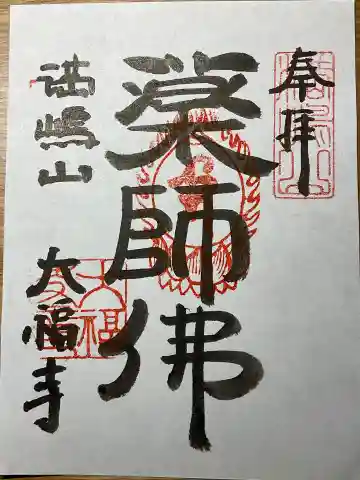 奉拝
薬師佛
満嶋山
大福寺